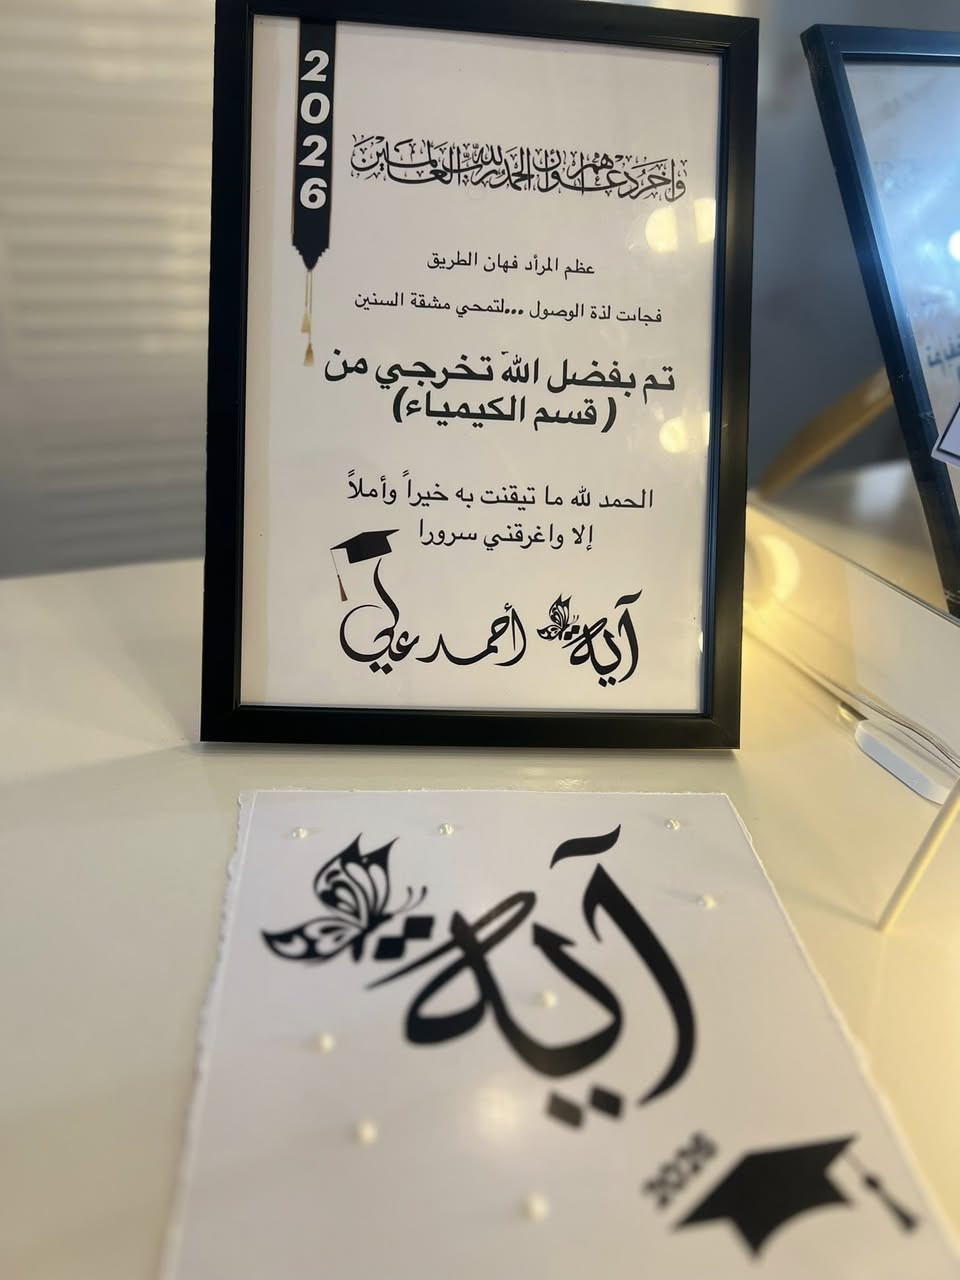 2026
وآخر دعواهم أن الحمد لله رب العالمين
عظم المرأد فهان الطريق
فجاءت لذة الوصول ...لتمحي مشقة السنين
تم بفضل الله تخرجي من
(قسم الكيمياء)
الحمد لله ما تيقنت به خيراً وأملاً
إلا واغرقني سرورا
آية أحمد علي
آية
2026